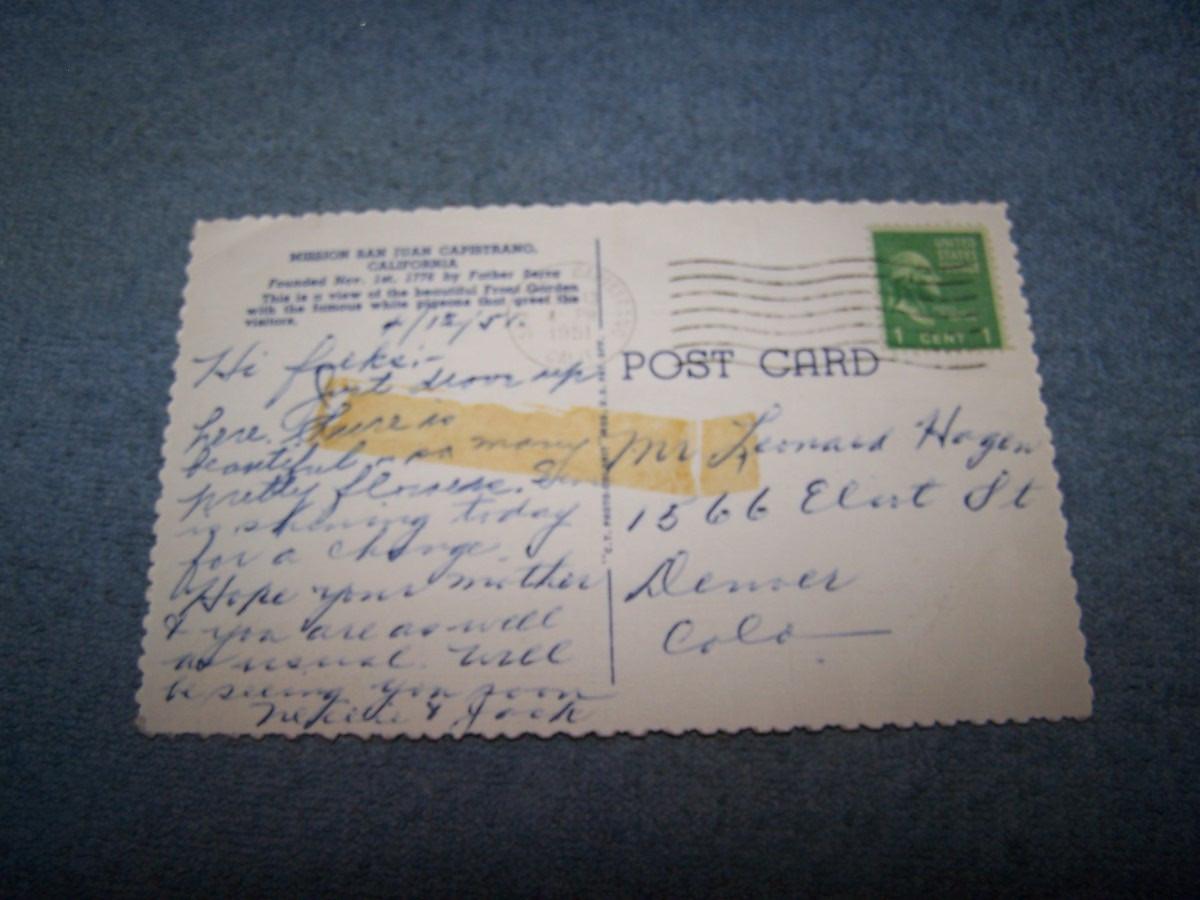 MISSION SAN JUAN CAPISTRANO,
CALIFORNIA
Founded Nov. 1st, 1776 by Father Serra
This is a view of the beautiful Front Garden
with the famous white pigeons that greet the
visitors.
Hi folks:-
Just drove up
here. There is
beautiful, so many
pretty flowers.
is shining today
for a change.
Hope your mother
& you are as well
as usual. Will
be seeing you soon
& Jack
1951
POST CARD
UNITED
STATES
1 CENT 1
Mr Leonard Hagen
1566 Eliot St
Denver
Colo